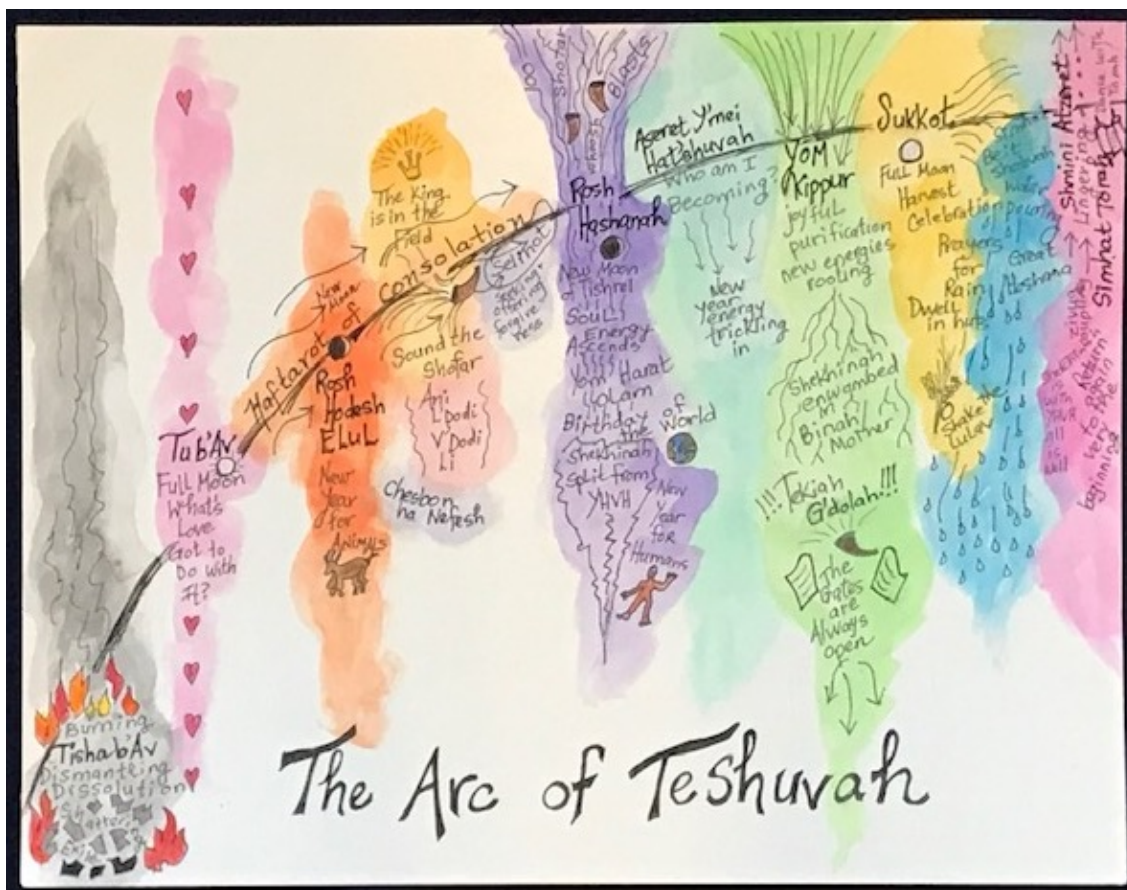 Burning
Tishab'Av
Dismantling
Dissolution
Shattering
Exile
Tub'Av
Full Moon
What's
Love
Got to
Do with
It?
Haftarot of consolation
New
Moon
Rosh
Hodesh
ELUL
New
Year
for
Animus
The King
is in the
Field
Sound the
Shofar
Ani
L'Dodi
V'Dodi
Li
Chesbon
ha Nefesh
Selihot
Seeking
offering
forgive
ness
100
Shofar
Blasts
Rosh
Hashanah
New Moon
of Tishrei
Soul
Energy
Ascends
Yom Harat
Olam
Birthday of
the World
Shekhinah
Split from
YHVH
New
Year
for
Humans
Aseret Y'mei
Hat'shuvah
Who am I
Becoming?
New
year
energy
trickling
in
Yom
Kippur
joyful
purification
new energies
rooting
Shekhinah
enwombed
in
Binah
Mother
!!!Tekiah
G'dolah!!!
The
Gates
are
Always
open
Sukkot
Full Moon
Harvest
Celebration
Prayers
for
Rain
Dwell
in huts
Shake the
Lulav
water
pouring
Great
Hoshana
Shmini Atzeret
Lingering
Simhat Torah
Dance with
Torah
Return
to the
beginning
The Arc of Teshuvah